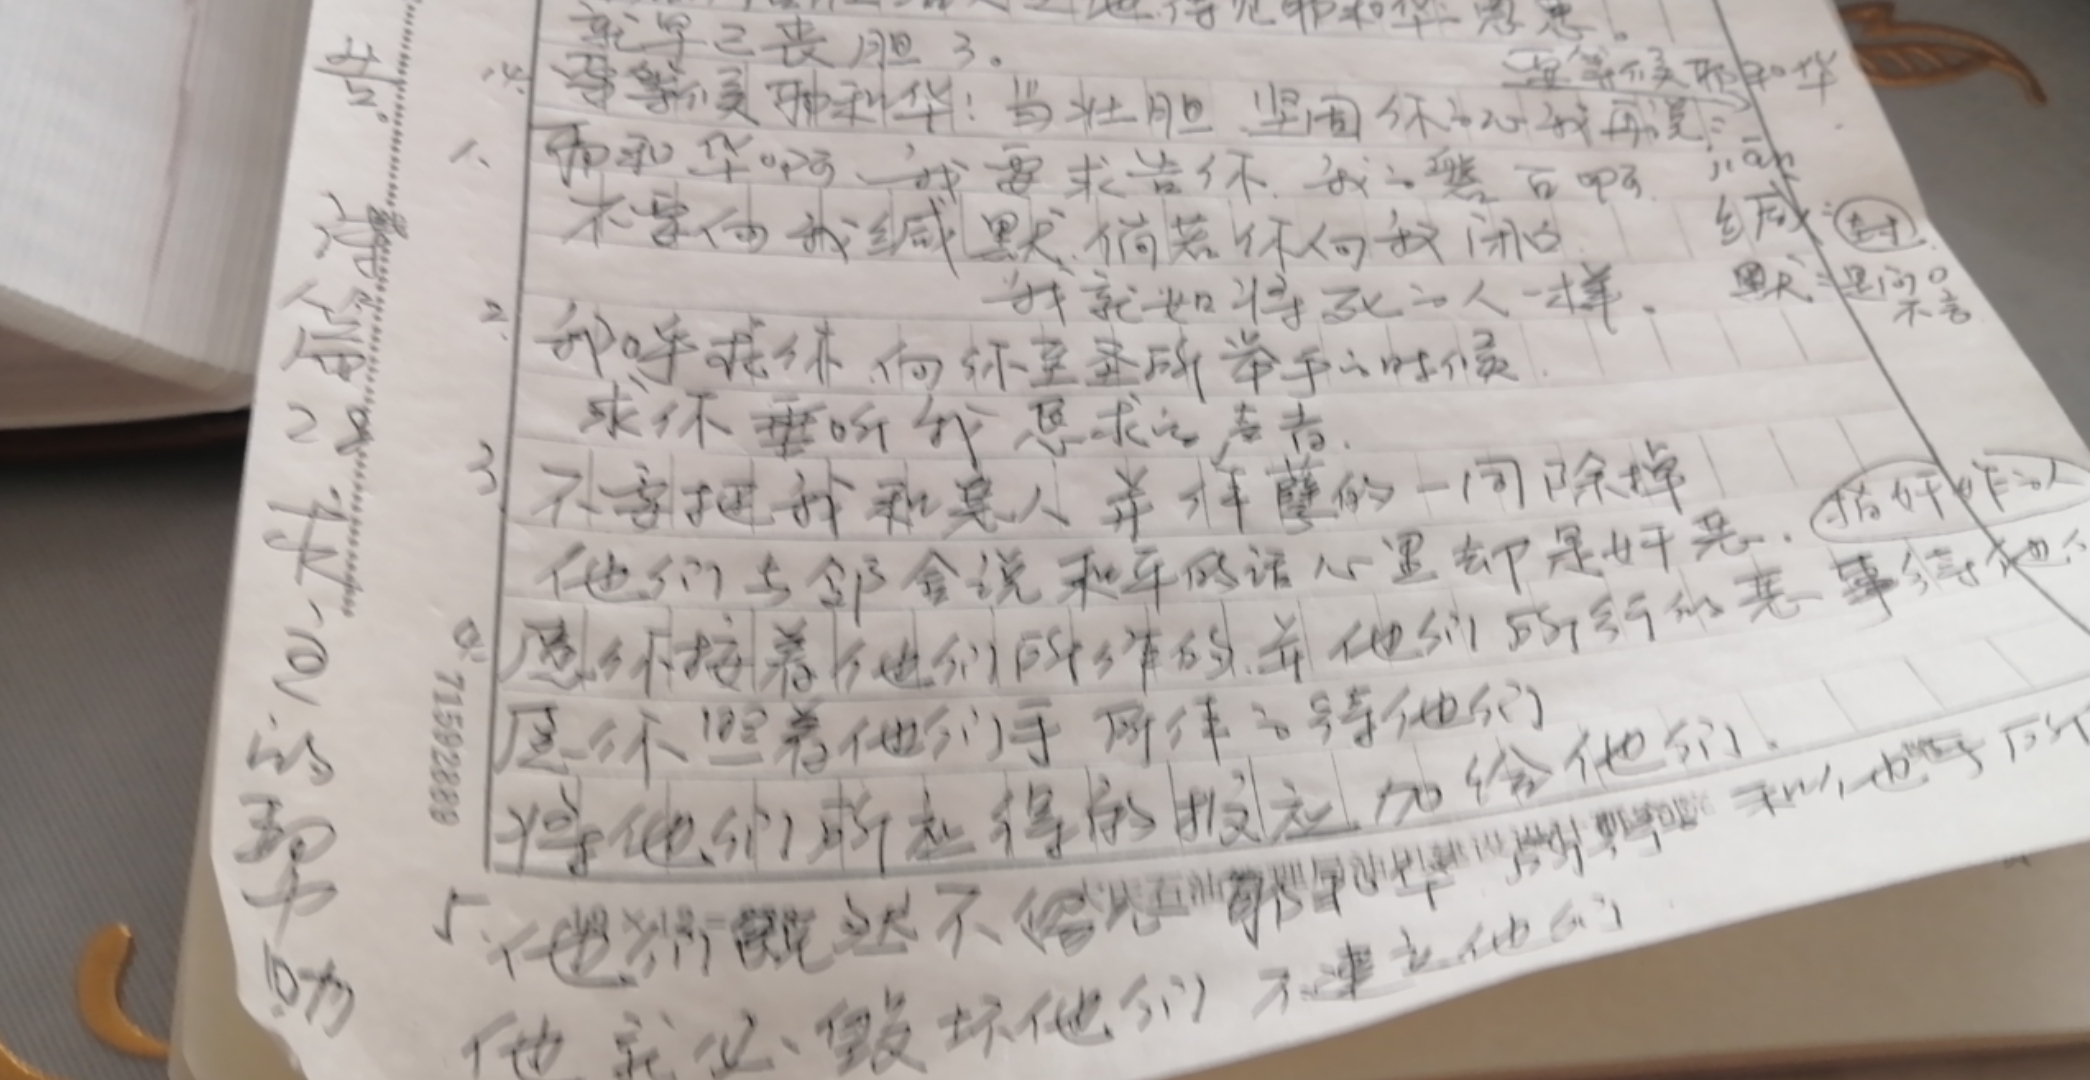 就早已丧胆了。
要等候耶和华
14. 要等候耶和华!当壮胆 坚固你的心我再说:
1、 耶和华啊 我要求告你. 我的磐石啊.
不要向我缄默.倘若你向我闭口
jiān
缄:封.
默:是闭口
不言
我就如将死的人一样.
2. 我呼求你.向你至圣所举手的时候.
求你垂听我恳求的声音.
3. 不要把我和恶人并作孽的一同除掉
他们与邻舍说和平的话心里却是奸恶.
指奸诈的人
4. 愿你按着他们所作的.并他们所行的恶事待他们
愿你照着他们手所作的待他们
将他们所应得的报应加给他们.
5. 他们既然不 耶和华所 和他手所
他就必、毁坏他们 不建立他们.
诗篇28
求 的帮助
71592889